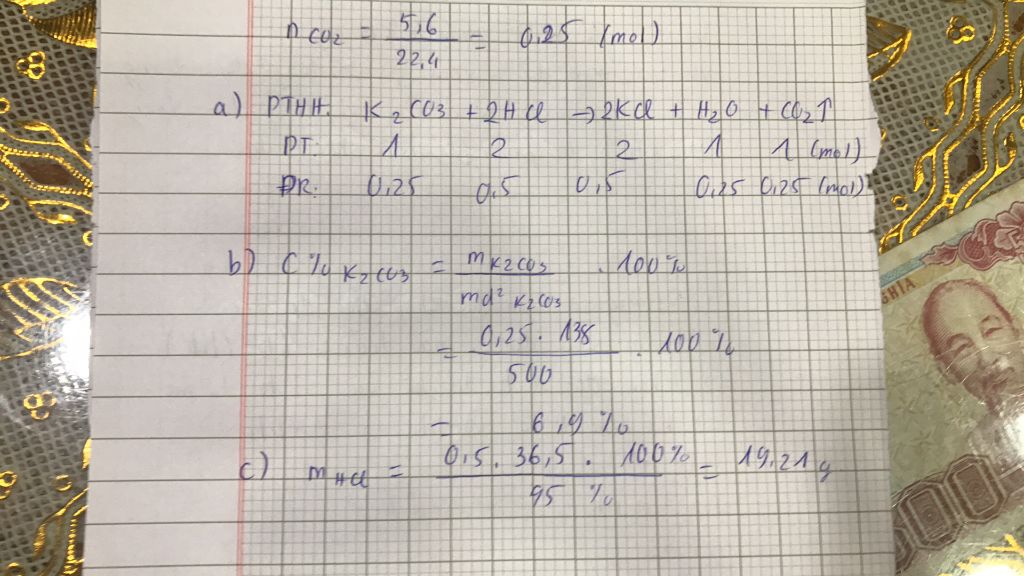 n CO2 = 5,6 / 22,4 = 0,25 (mol)
a) PTHH: K2CO3 + 2HCl → 2KCl + H2O + CO2↑
PT: 1 2 2 1 1 (mol)
ĐR: 0,25 0,5 0,5 0,25 0,25 (mol)
b) C% K2CO3 = mK2CO3 / md² K2CO3 . 100%
= 0,25 . 138 / 500 . 100%
= 6,9 %
c) mHCl = 0,5 . 36,5 . 100% / 95 % = 19,21 g